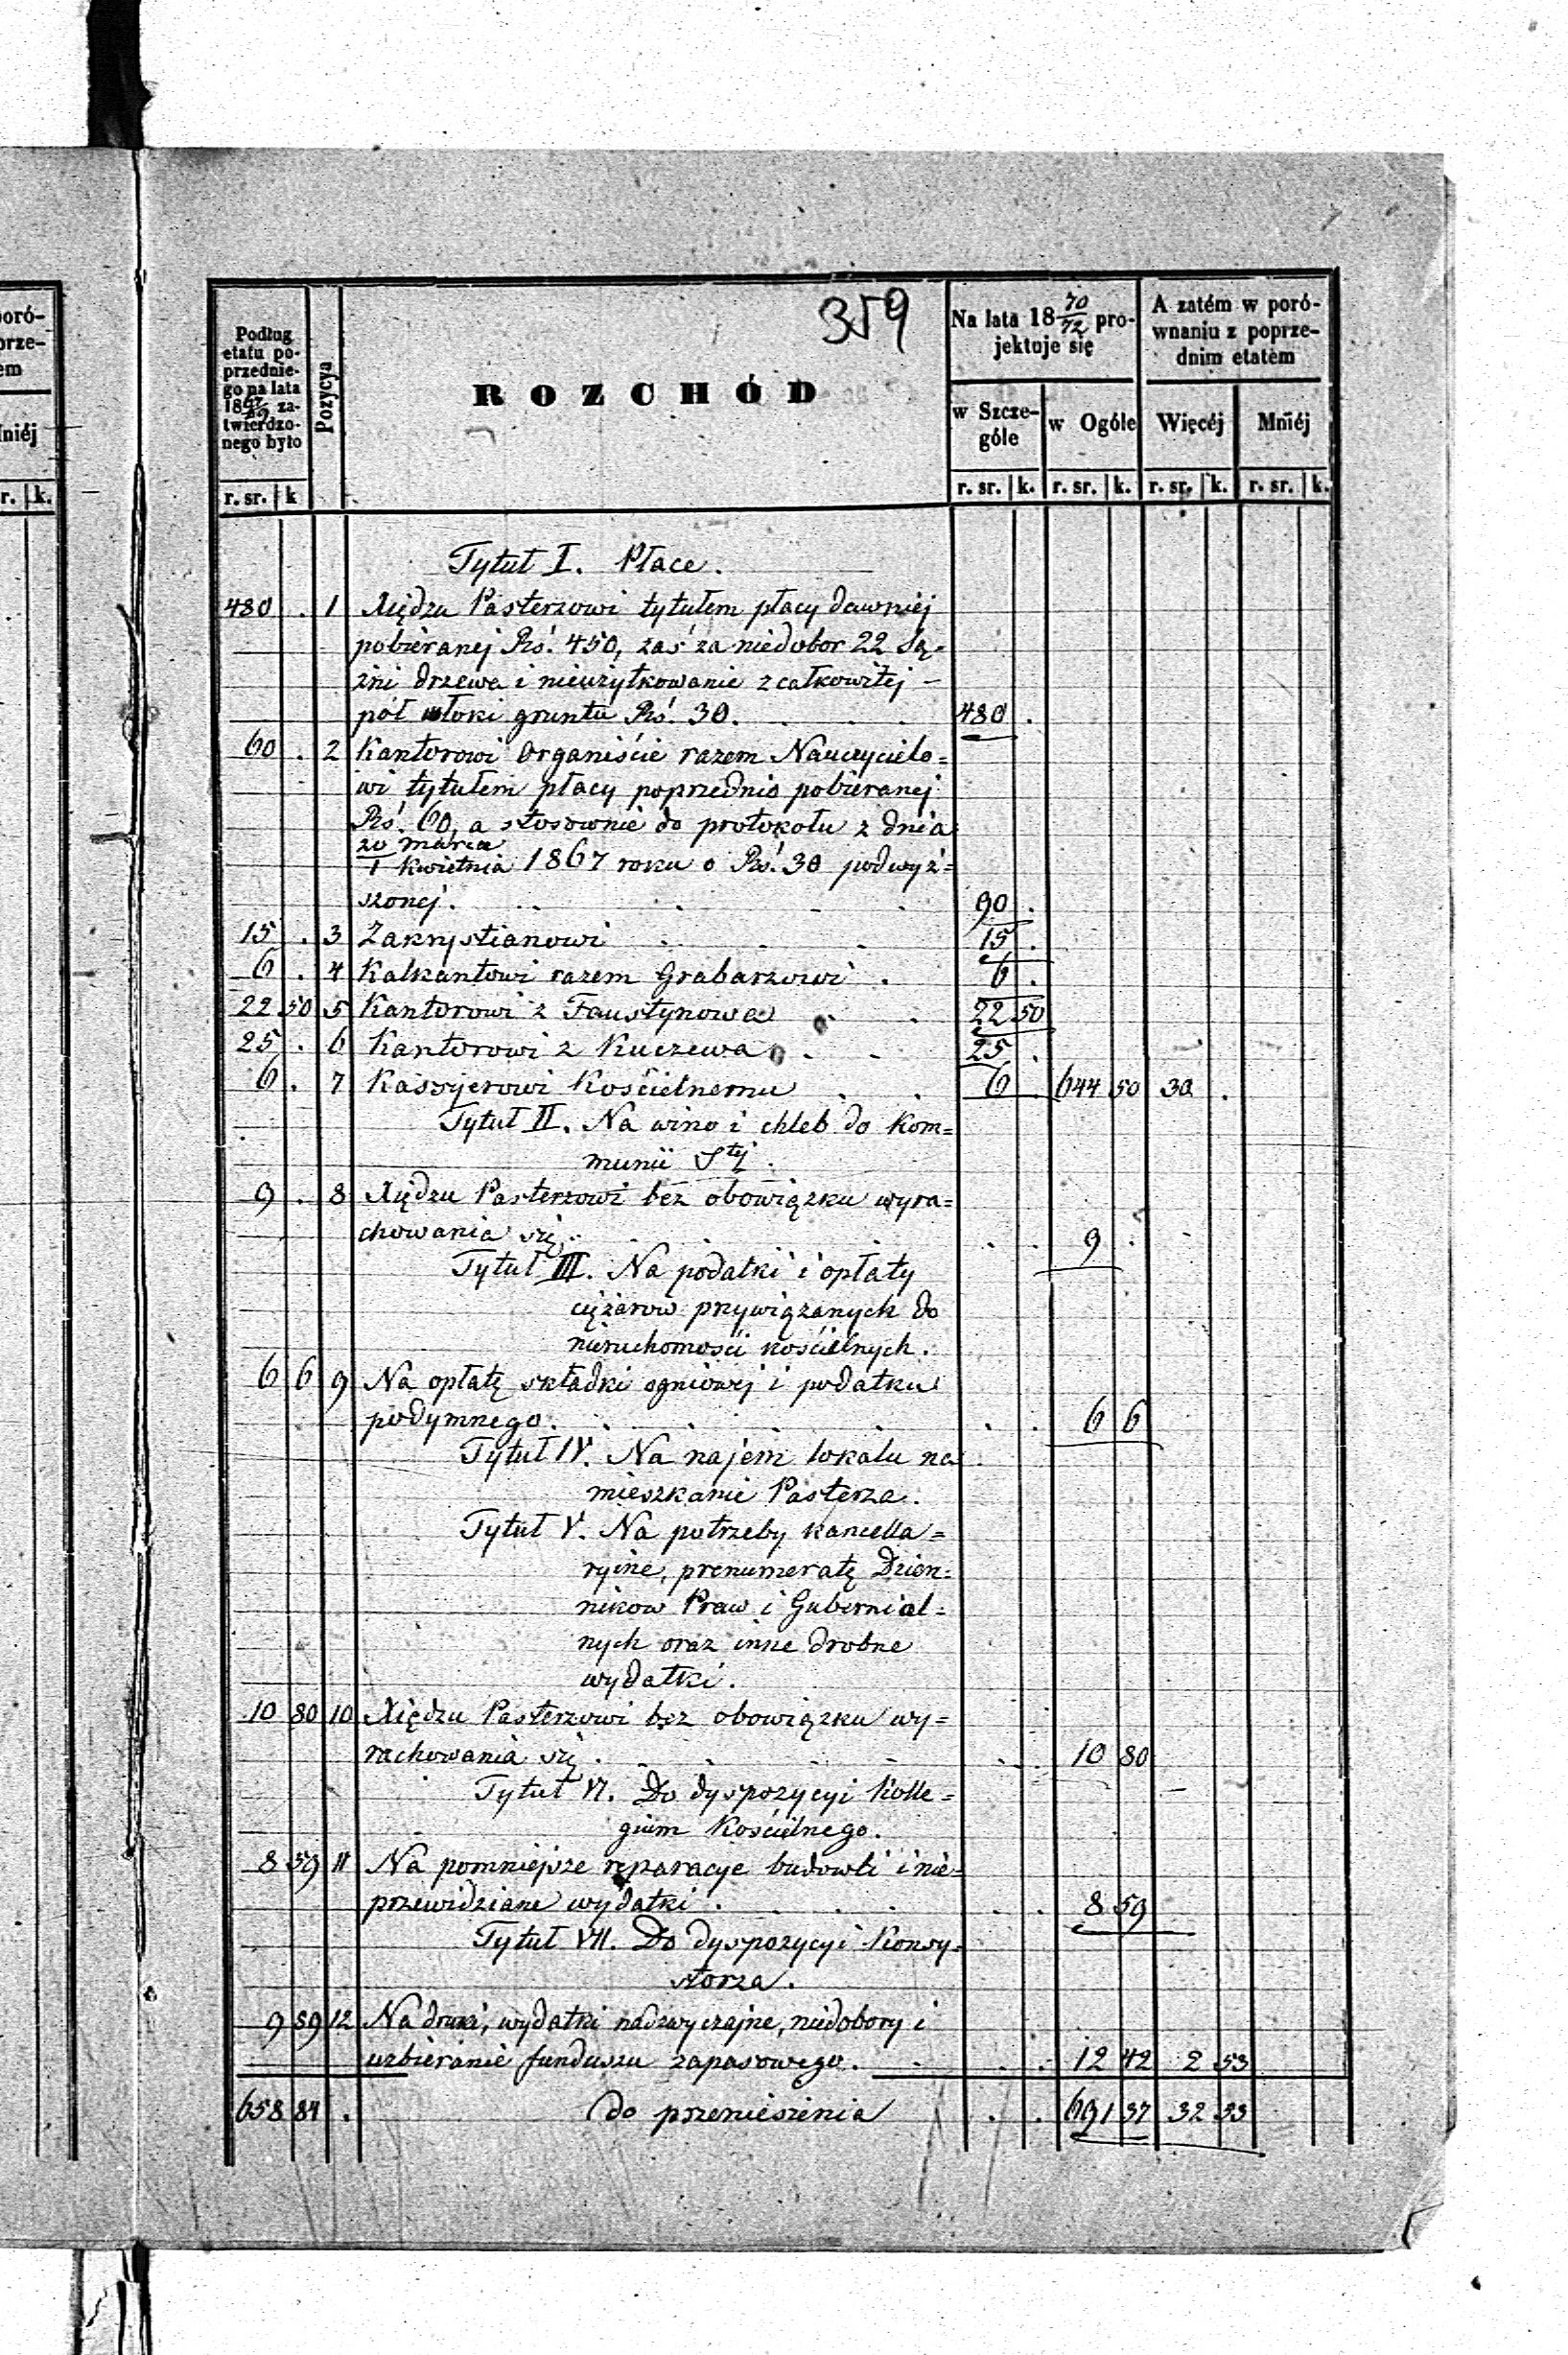 oró-
orze-
em
Iniéj
r. k.
359
Podług
etatu po-
przednie-
go na lata
1867/69 za-
twierdzo-
nego było
Pozycya
ROZCHÓD
Na lata 18 70/72 pro-
jektuje się
A zatém w poró-
wnaniu z poprze-
dnim etatem
w Szcze-
góle
w Ogóle
Więcéj
Mniéj
r. sr. k
r. sr. k. r. sr. k. r. sr. k. r. sr. k.
Tytuł I. Płace.
480 . 1 Xiędzu Pasterzowi tytułem płacy dawniej
pobieranej Rś. 450, zaś za niedobor 22 są-
żni drzewa i nieużytkowanie z całkowitej –
pół włoki gruntu Rś. 30. 480 .
60 . 2 Kantorowi Organiście razem Nauczycielo=
wi tytułem płacy poprzednio pobieranej
Rś. 60, a stosownie do protokołu z dnia
20 marca
1 Kwietnia 1867 roku o Rś. 30 podwyż=
szonej. 90 .
15 . 3 Zakrystianowi 15 .
6 . 4 Kalkantowi razem Grabarzowi 6 .
22 50 5 Kantorowi z Faustynowa 22 50
25 . 6 Kantorowi z Kuczewa 25 .
6 . 7 Kassyerowi Kościelnemu 6 . 644 50 30 .
Tytuł II. Na wino i chleb do Kom=
munii Stéj.
9 . 8 Xiędzu Pasterzowi bez obowiązku wyra=
chowania się . . 9 .
Tytuł III. Na podatki i opłaty
ciężarow przywiązanych do
nieruchomości kościelnych.
6 6 9 Na opłatę składki ogniowej i podatku
podymnego. . . 6 6
Tytuł IV. Na najem lokalu na
mieszkanie Pasterza.
Tytuł V. Na potrzeby kancella=
ryine, prenumeratę Dzien=
nikow Praw i Gubernial=
nych oraz inne drobne
wydatki.
10 80 10 Xiędzu Pasterzowi bez obowiązku wy=
rachowania się . . . 10 80
Tytuł VI. Do dyspozycyi Kolle=
gium Kościelnego.
8 59 11 Na pomniejsze reparacye budowli i nie=
przewidziane wydatki . . . 8 59
Tytuł VII. Do dyspozycyi Konsy=
storza.
9 89 12 Na druki, wydatki nadzwyczajne, niedobory i
uzbieranie funduszu zapasowego. . . 12 42 2 53
658 84 . Do przeniesienia . . 691 37 32 53